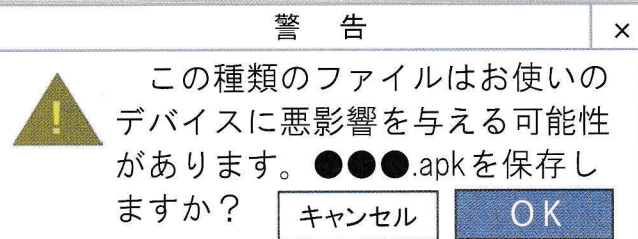 警 告 ×
この種類のファイルはお使いの
デバイスに悪影響を与える可能性
があります。●●●.apkを保存し
ますか？ キャンセル OK